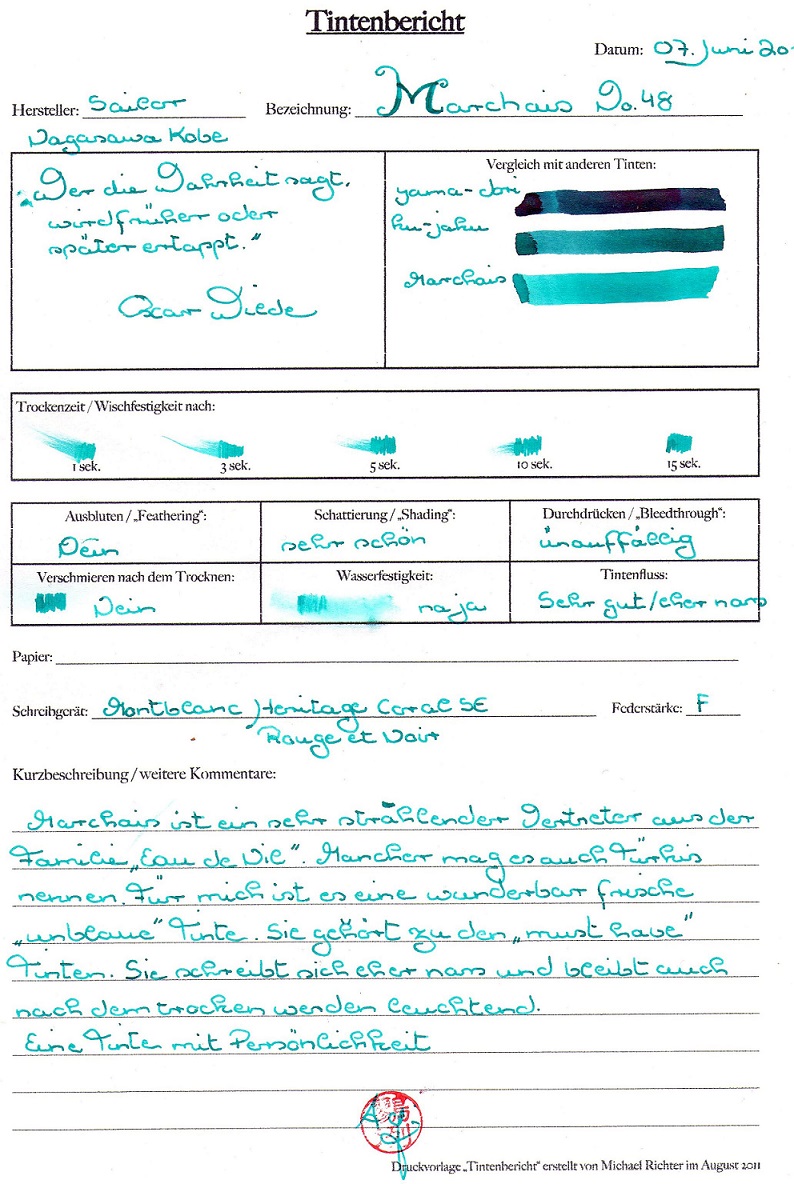 Tintenbericht
Datum: 07. Juni 20
Hersteller: Sailor Bezeichnung: Marchais No. 48
Nagasawa Kobe
„Wer die Wahrheit sagt,
wird früher oder
später ertappt."
Oscar Wilde
Vergleich mit anderen Tinten:
yama-dori
ku-jaku
Marchais
Trockenzeit / Wischfestigkeit nach:
1 sek. 3 sek. 5 sek. 10 sek. 15 sek.
Ausbluten / „Feathering": Schattierung / „Shading": Durchdrücken / „Bleedthrough":
Nein sehr schön unauffällig
Verschmieren nach dem Trocknen: Wasserfestigkeit: Tintenfluss:
Nein na ja Sehr gut/eher nass
Papier:
Schreibgerät: Montblanc Heritage Coral SE Federstärke: F
Rouge et Noir
Kurzbeschreibung / weitere Kommentare:
Marchais ist ein sehr strahlender Vertreter aus der
Familie „Eau de Nil". Mancher mag es auch Türkis
nennen. Für mich ist es eine wunderbar frische
„unblaue" Tinte. Sie gehört zu den „must have"
Tinten. Sie schreibt sich eher nass und bleibt auch
nach dem trocken werden leuchtend.
Eine Tinte mit Persönlichkeit
Druckvorlage „Tintenbericht" erstellt von Michael Richter im August 2011